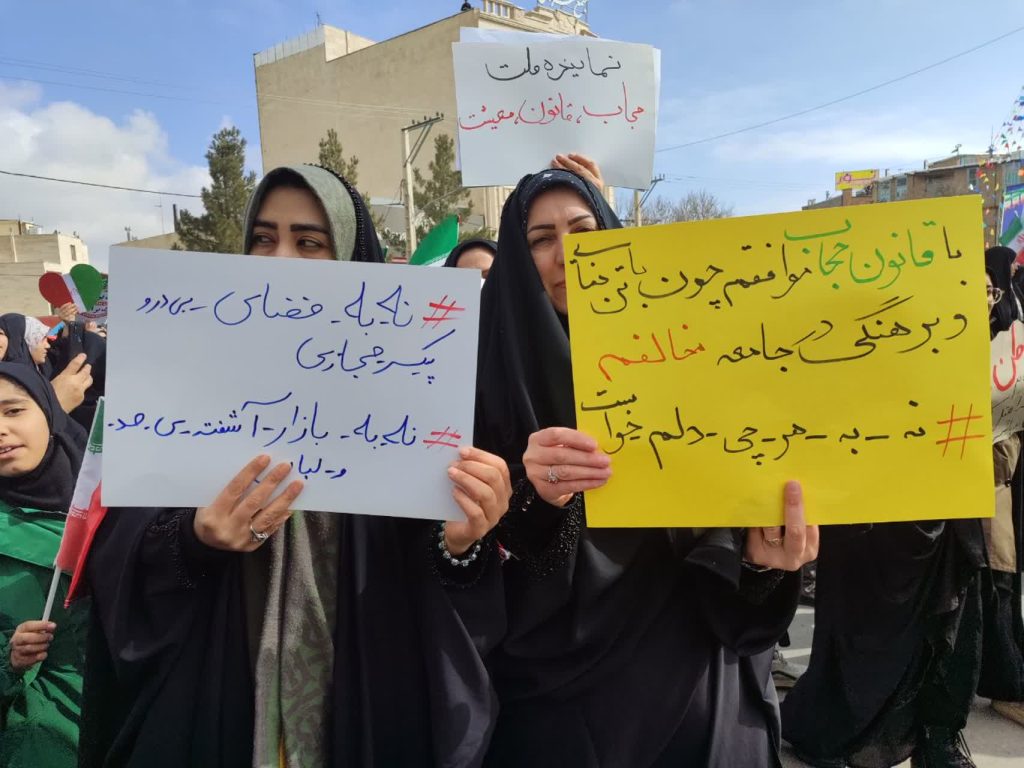 نماینده ملت
حجاب، قانون، معیشت
#نه_به_فضای_بی‌درو
پیکر_مجازی
#نه_به_بازار_آشفته_بی_حد_
و_لبا
با قانون حجاب موافقم چون با تن نمایی
و برهنگی در جامعه مخالفم
#نه_به_هر_چی_دلم_خواست